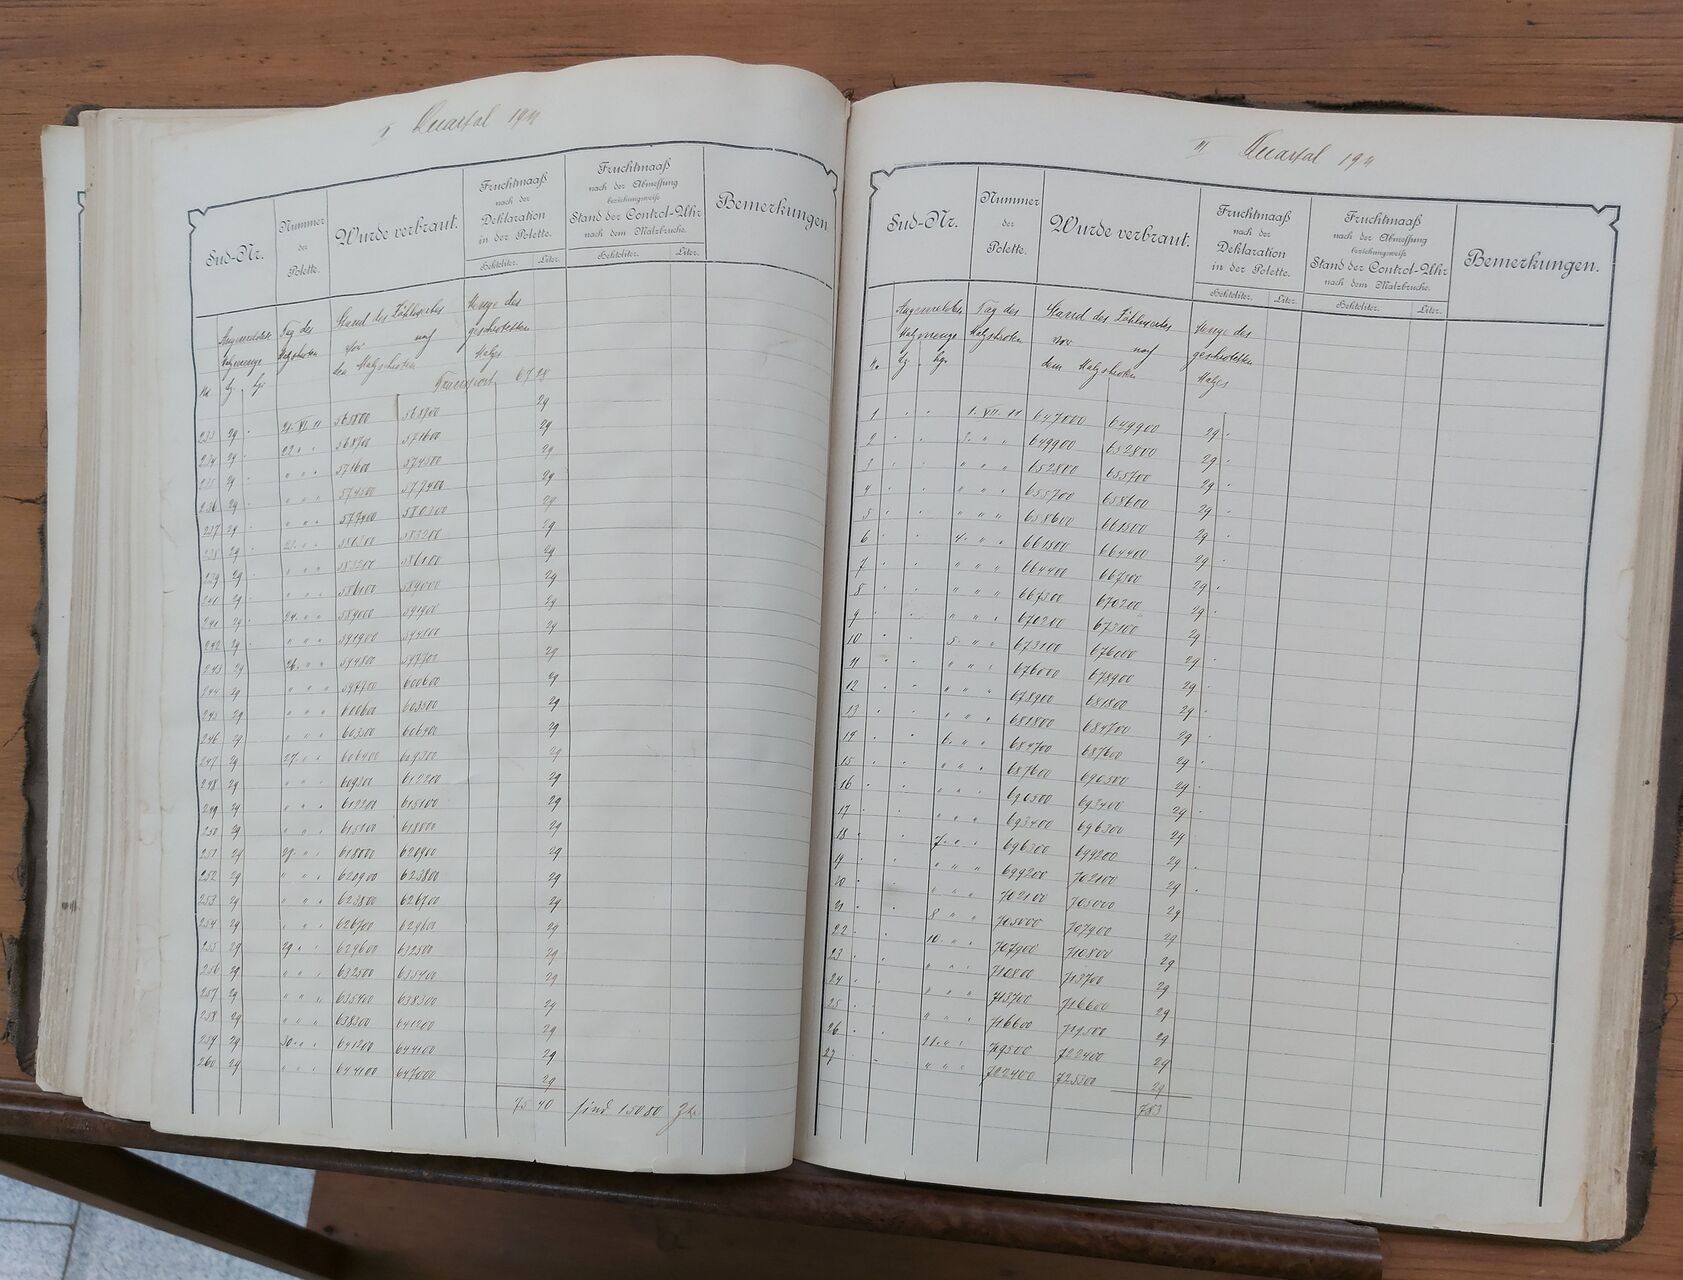 Quartal 1911
Sud-Nr.
Nummer
der
Polette.
Wurde verbraut.
Fruchtmaaß
nach der
Deklaration
in der Polette.
Hektoliter. Liter.
Fruchtmaaß
nach der Abmessung
beziehungsweise
Stand der Control-Uhr
nach dem Malzbruche.
Hektoliter. Liter.
Bemerkungen.
Angemeldete Tag des Stand des Zählwerkes Menge des
Malzmenge Malzschroten vor nach geschroteten
dem Malzschroten Malzes
Transport 6728
233 29 21. VI 11 565800 568700 29
234 29 22. " 568700 571600 29
235 29 " " 571600 574500 29
236 29 " " " 574500 577400 29
237 29 " " 577400 580300 29
238 29 23. " 583200 29
239 29 " " " 583200 586100 29
29 " " " 586100 589000 29
241 29 24. " " 589000 591900 29
242 29 " " " 591900 594800 29
243 29 26. " " 594800 597700 29
244 29 " " " 597700 600600 29
245 29 " " " 600600 603500 29
246 29 " " 603500 606400 29
247 29 27. " 606400 609300 29
248 29 " " 609300 612200 29
249 29 " " 612200 615100 29
250 29 " " 615100 618000 29
251 29 " 618000 620900 29
252 29 " " 620900 623800 29
253 29 " " 623800 626700 29
254 29 " " 626700 629600 29
255 29 29. " 629600 632500 29
256 29 " " 632500 635400 29
257 29 " " 635400 638300 29
258 29 " " " 638300 641200 29
259 29 30. " 641200 644100 29
260 29 " " 644100 647000 29
7540 sind 15080 Ztr.
III Quartal 1911
Sud-Nr.
Nummer
der
Polette.
Wurde verbraut.
Fruchtmaaß
nach der
Deklaration
in der Polette.
Hektoliter. Liter.
Fruchtmaaß
nach der Abmessung
beziehungsweise
Stand der Control-Uhr
nach dem Malzbruche.
Hektoliter. Liter.
Bemerkungen.
Angemeldete Tag des Stand des Zählwerkes Menge des
Malzmenge Malzschroten vor nach geschroteten
dem Malzschroten Malzes
1 1. VII. 11 647000 649900 29
2 3. " " 649900 652800 29
3 " " " 652800 655700 29
4 " " " 655700 658600 29
5 " " " 658600 661500 29
6 4. " " 661500 664400 29
7 " " " 664400 667300 29
8 " " " 667300 670200 29
9 " " " 670200 673100 29
10 5. " " 673100 676000 29
11 " " " 676000 678900 29
12 " " " 678900 681800 29
13 " " " 681800 684700 29
14 6. " " 684700 687600 29
15 " " " 687600 690500 29
16 " " " 690500 693400 29
17 " " " 693400 696300 29
18 7. " " 696300 699200 29
19 " " " 699200 702100 29
20 " " " 702100 705000 29
21 8 " " 705000 707900 29
22 10. " " 707900 710800 29
23 " " " 710800 713700 29
24 " " " 713700 716600 29
25 " " " 716600 719500 29
26 11. " " 719500 722400 29
27 " " " 722400 725300 29
783